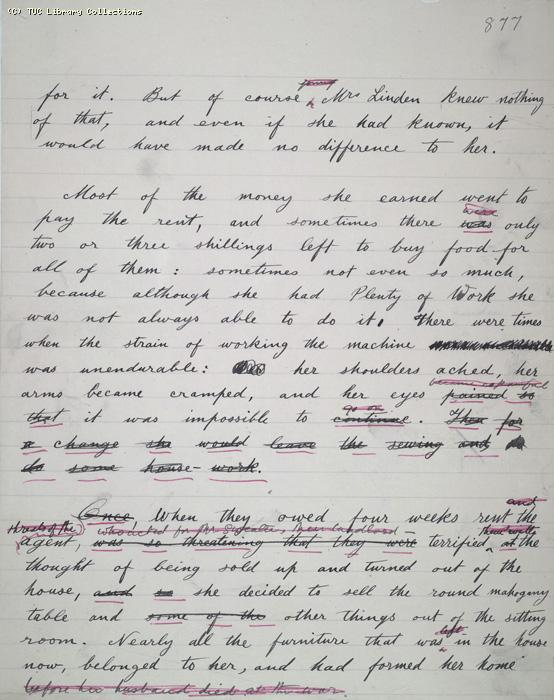 (C) TUC Library Collections
877
young
for it. But of course Mrs Linden knew nothing
of that, and even if she had known, it
would have made no difference to her.
Most of the money she earned went to
were
pay the rent, and sometimes there was only
two or three shillings left to buy food for
all of them: sometimes not even so much,
because although she had Plenty of Work she
was not always able to do it. There were times
when the strain of working the machine
was unendurable: her shoulders ached, her
arms became cramped, and her eyes pained so
go on
that it was impossible to continue. Then for
a change she would leave the sewing and
do some house-work.
and
Once, When they owed four weeks rent the
threats of the who acted for Mr Sweater, their landlord
agent, was so threatening that they were terrified at the
thought of being sold up and turned out of the
house, and so she decided to sell the round mahogany
table and some of the other things out of the sitting
left
room. Nearly all the furniture that was in the house
now, belonged to her, and had formed her home
before her husband died at the war.